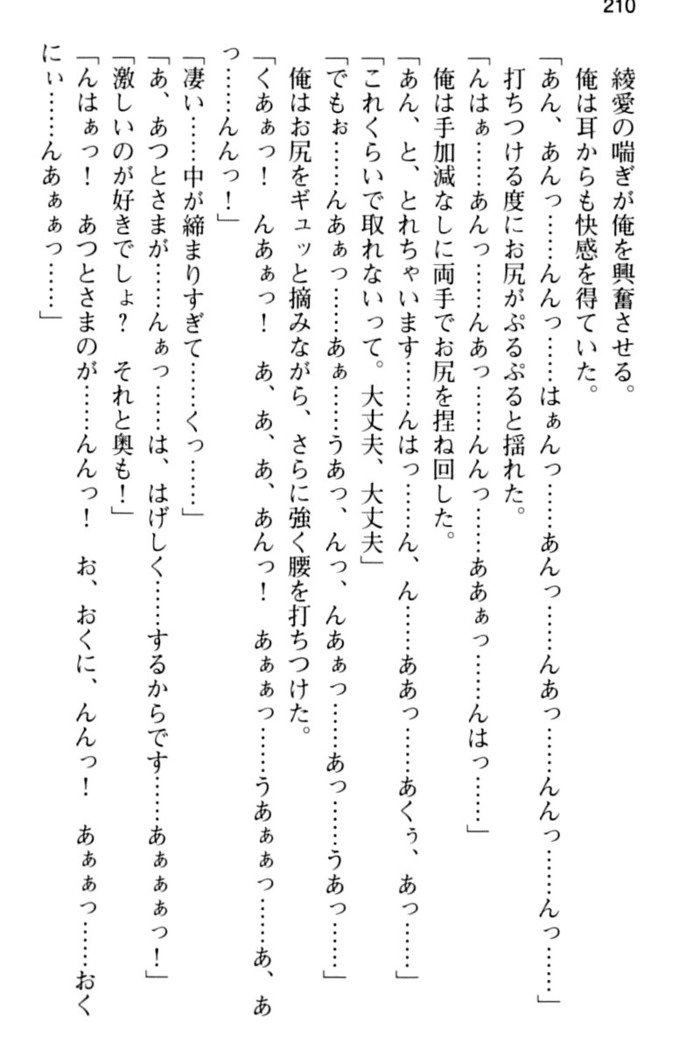 210
綾愛の喘ぎが俺を興奮させる。
俺は耳からも快感を得ていた。
「あん、あんっ……んんっ……はぁんっ……あんっ……んあっ……んんっ……んっ……」
打ちつける度にお尻がぷるぷると揺れた。
「んはぁ……あんっ……んあっ……んんっ……ああぁっ……んはっ……」
俺は手加減なしに両手でお尻を捏ね回した。
「あん、と、とれちゃいます……んはっ……ん、ん……ああっ……あくぅ、あっ……」
「これくらいで取れないって。大丈夫、大丈夫」
「でもぉ……んあぁっ……あぁ……うあっ、んっ、んあぁっ……あっ……うあっ……」
俺はお尻をギュッと摘みながら、さらに強く腰を打ちつけた。
「くあぁっ！　んあぁっ！　あ、あ、あ、あんっ！　あぁぁっ……うあぁぁっ……あ、あ
っ……んんっ！」
「凄い……中が締まりすぎて……くっ……」
「あ、あつとさまが……んぁっ……は、はげしく……するからです……あぁぁぁっ！」
「激しいのが好きでしょ？　それと奥も！」
「んはぁっ！　あつとさまのが……んんっ！　お、おくに、んんっ！　あぁぁっ……おく
にぃ……んあぁぁっ……」